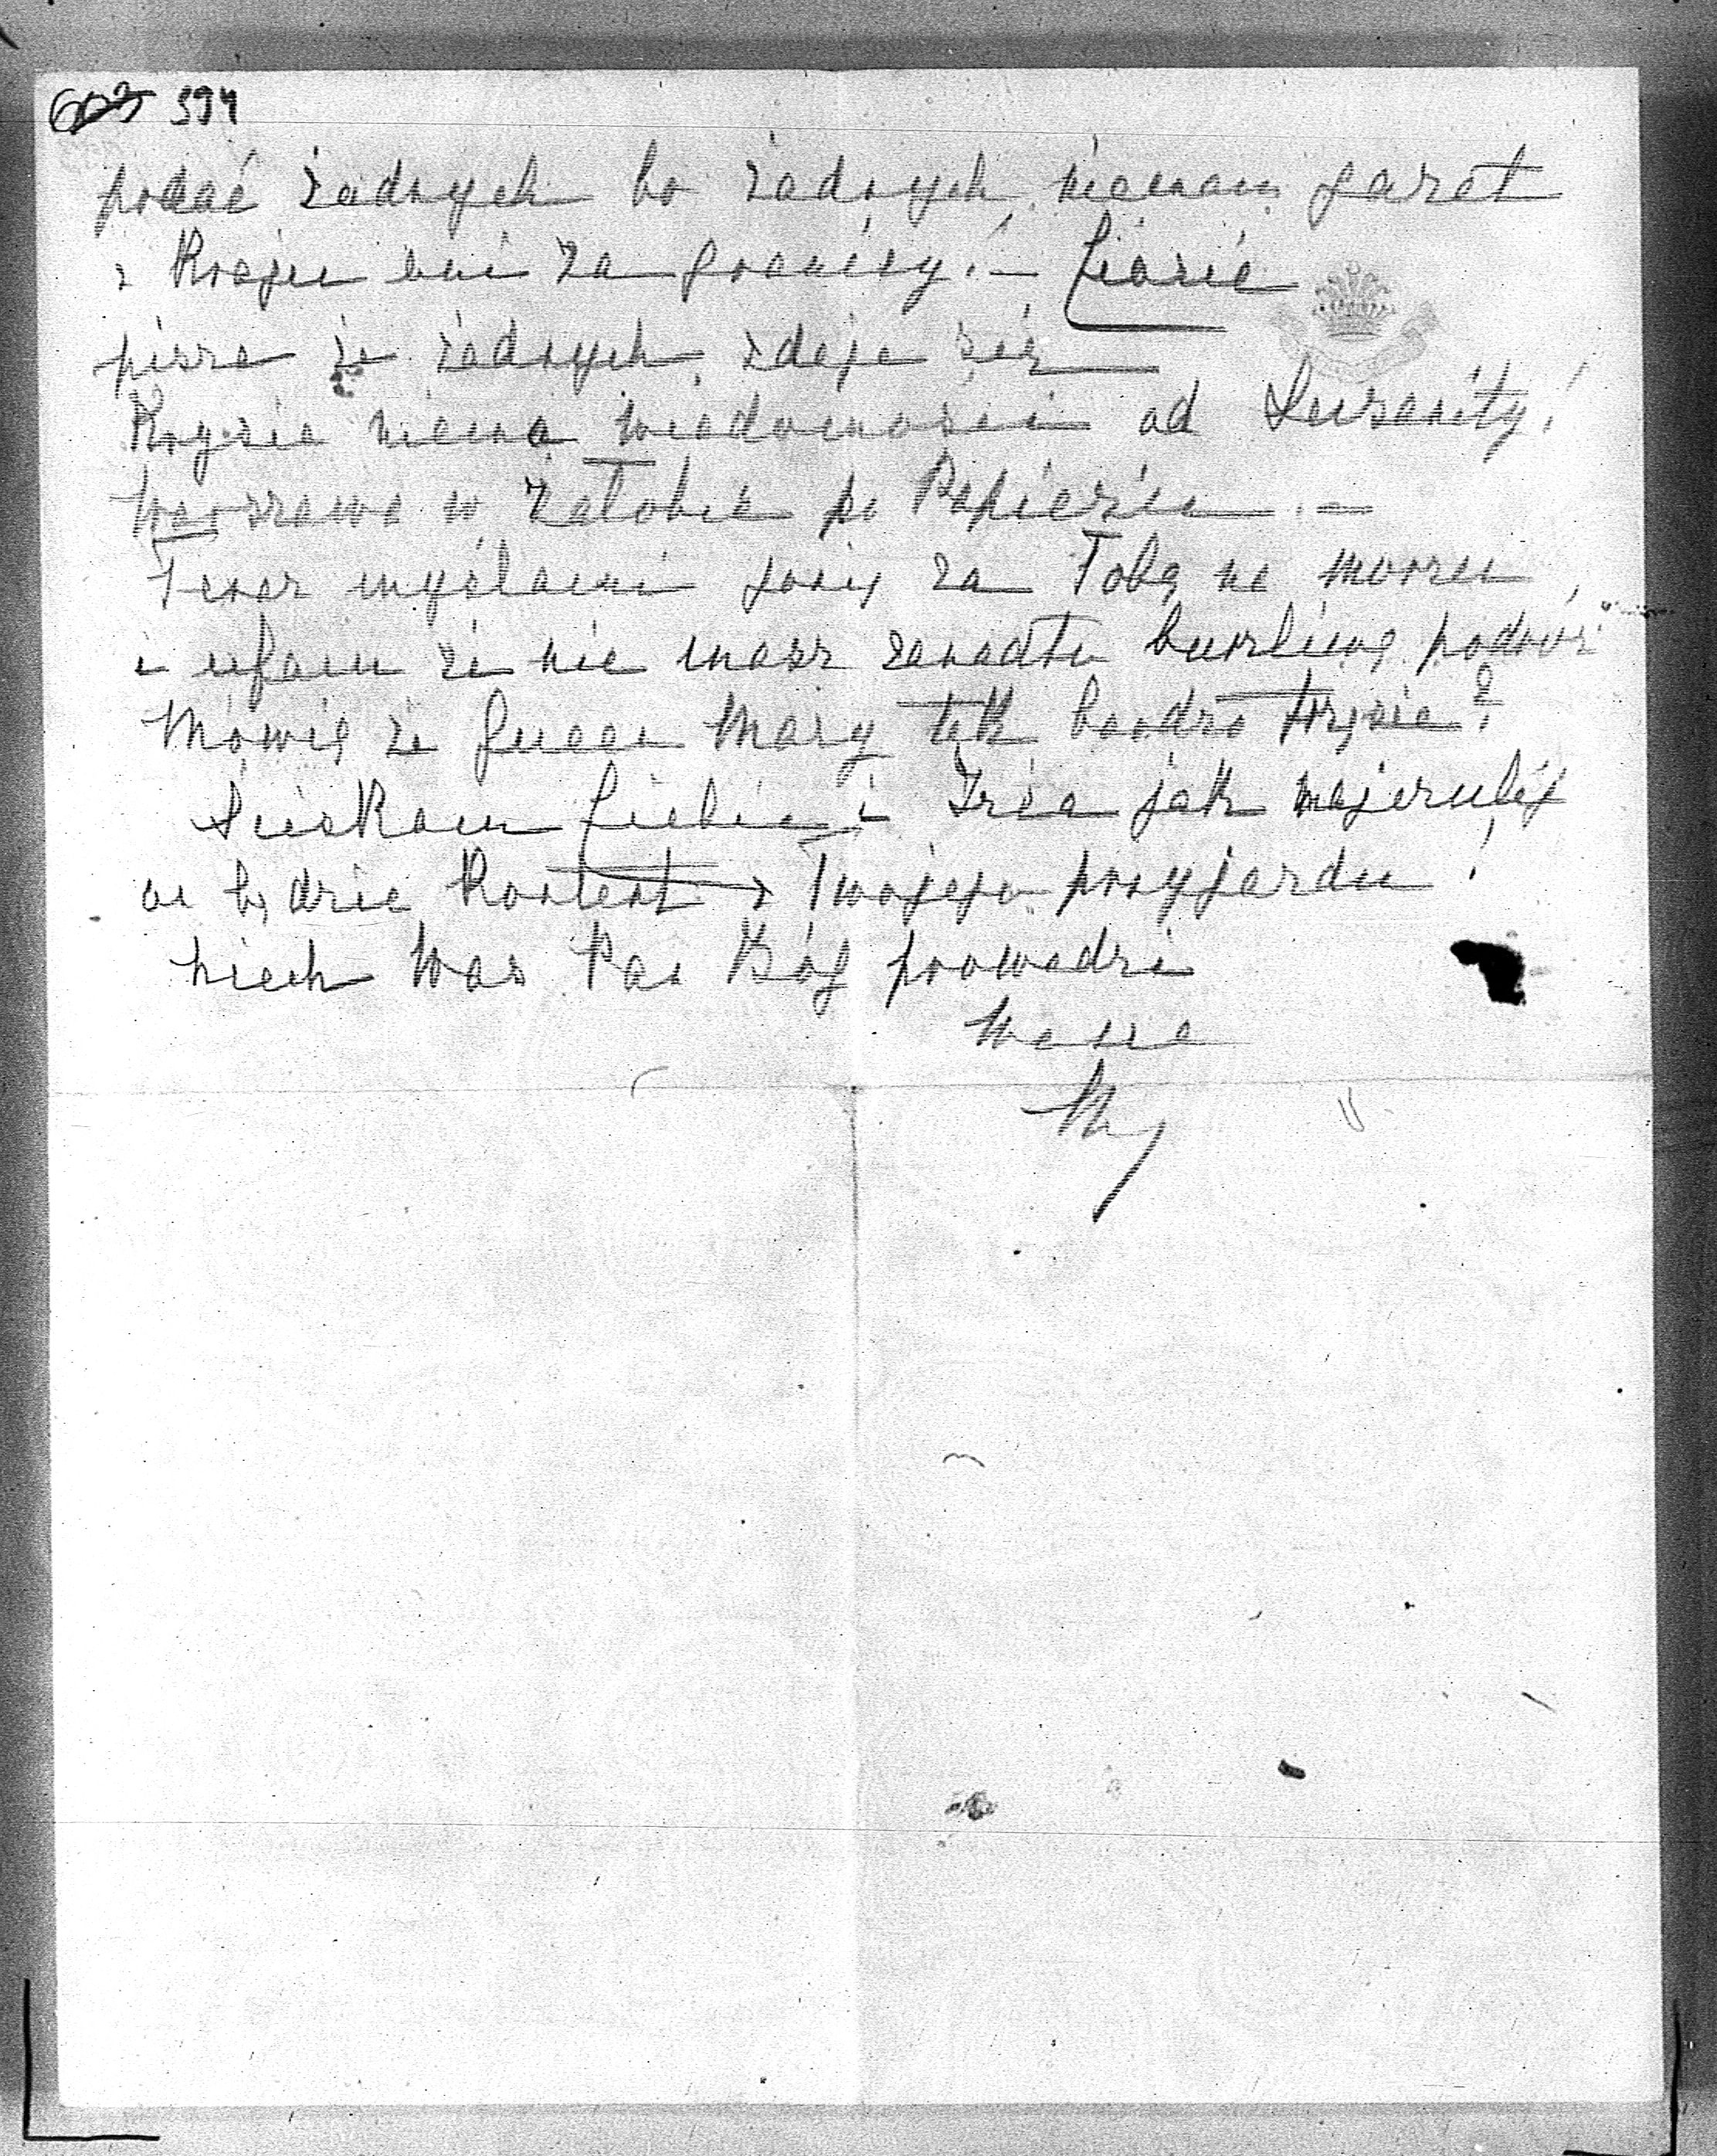 603 594
podać żadnych bo żadnych niemam gazet
z Kraju ani za granicy! —
pisze że żadnych zdaje się
Krysia niema wiadomości od Luzanity!
Warszawa w żałobie po Papieżu. —
Teraz myślami gonię za Tobą na morzu,
i ufam że nie masz zanadto burzliwą podróż
Mówią że Queen Mary tak bardzo trzęsie?
Ściskam Ciebie i Irca jak najczulej
on będzie kontent z Twojego przyjazdu!
niech Was Pan Bóg prowadzi
Wasza